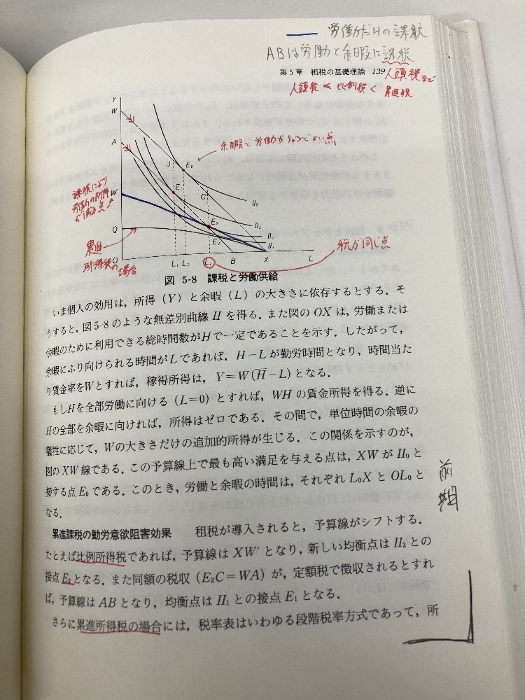 労働だけの課税
ABは労働と余暇に課税
第5章 租税の基礎理論 139
人頭税など
人頭税 < 比例税 < 累進税
Y
W
A
W'
Q
余暇と労働がちょうどよい点
J
E₀
E₁
C
E₂
E₃
II₀
II₁
II₂
累進
所得税の場合
税が同じ点
L₁ L₂
B
X
L
図 5-8 課税と労働供給
いま個人の効用は，所得（Y）と余暇（L）の大きさに依存するとする。そ
うすると，図5-8のような無差別曲線 II を得る。また図の OX は，労働または
余暇のために利用できる総時間数がHで一定であることを示す。したがって，
余暇にふり向けられる時間がLであれば，H－Lが勤労時間となり，時間当た
り賃金率をWとすれば，稼得所得は，Y＝W(H－L)となる。
もしHを全部労働に向ける（L＝0）とすれば，WH の賃金所得を得る。逆に
Hの全部を余暇に向ければ，所得はゼロである。その間で，単位時間の余暇の
犠牲に応じて，Wの大きさだけの追加的所得が生じる。この関係を示すのが，
図の XW 線である。この予算線上で最も高い満足を与える点は，XW が II₀ と
接する点 E₀ である。このとき，労働と余暇の時間は，それぞれ L₀X と OL₀ と
なる。
累進課税の勤労意欲阻害効果 租税が導入されると，予算線がシフトする。
たとえば比例所得税であれば，予算線は XW' となり，新しい均衡点は II₂ との
接点 E₂ となる。また同額の税収（E₂C＝WA）が，定額税で徴収されるとすれ
ば，予算線は AB となり，均衡点は II₁ との接点 E₁ となる。
さらに累進所得税の場合には，税率表はいわゆる段階税率方式であって，所
前期